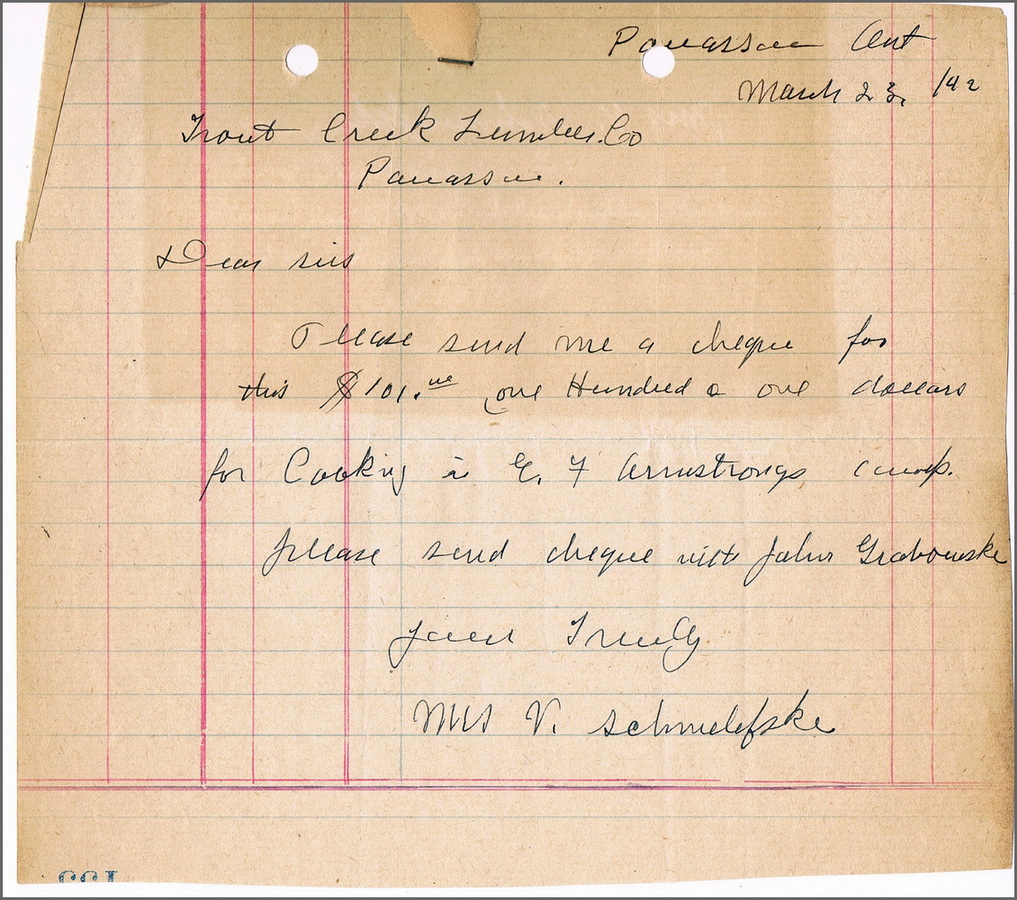 Powassan Ont
March 23, /42
Trout Creek Lumber. Co
Powassan.
Dear sirs
Please send me a cheque for
this $101. one Hundred a one dollars
for Cooking in E. F Armstrongs camp.
please send cheque with John Grabowski
Yours Truly
Mrs V. Schmelefske